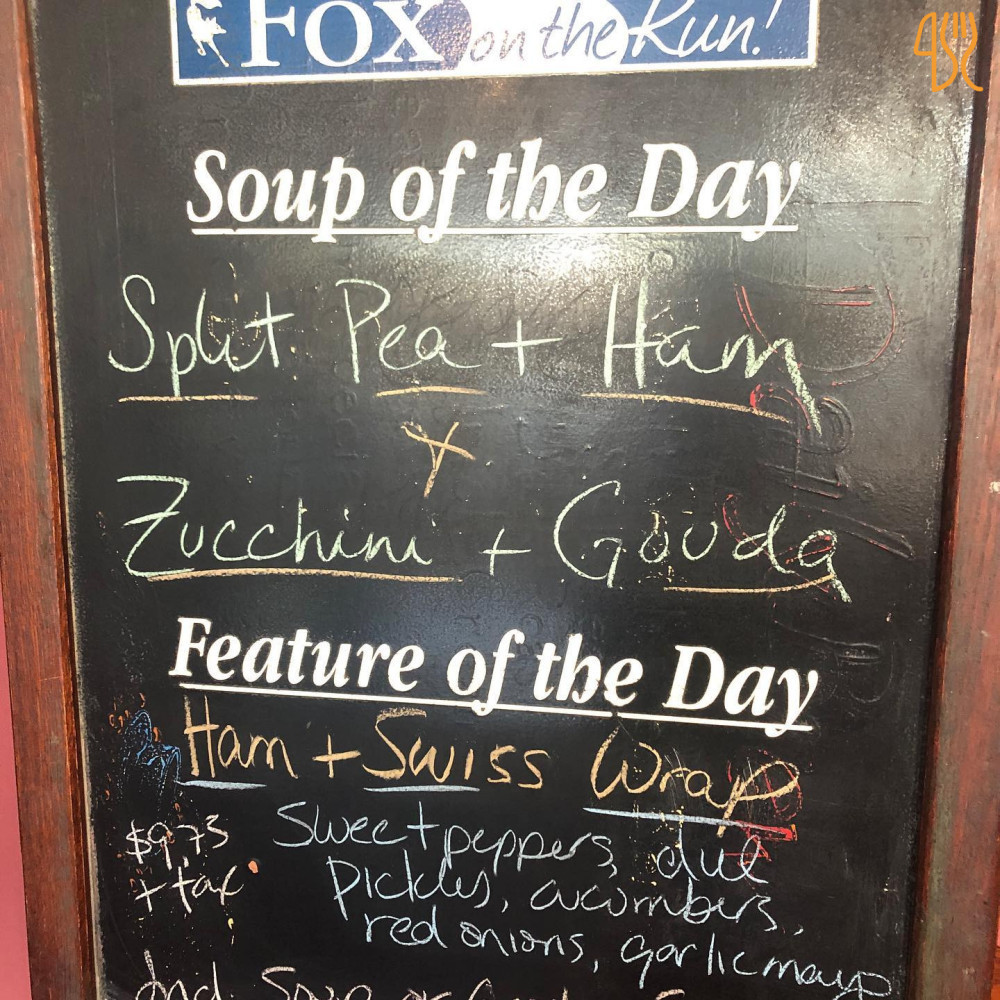 FOX on the Run!
Soup of the Day
Split Pea + Ham
+
Zucchini + Gouda
Feature of the Day
Ham + Swiss Wrap
$9.73 Sweet peppers, dill
+ tax Pickles, cucumbers,
red onions, garlic mayo
And Soup or